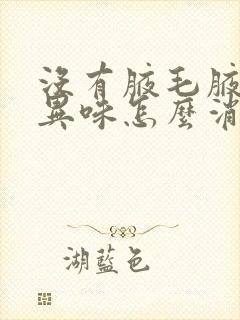 沒有腋毛腋
異味怎麼消
湖藍色